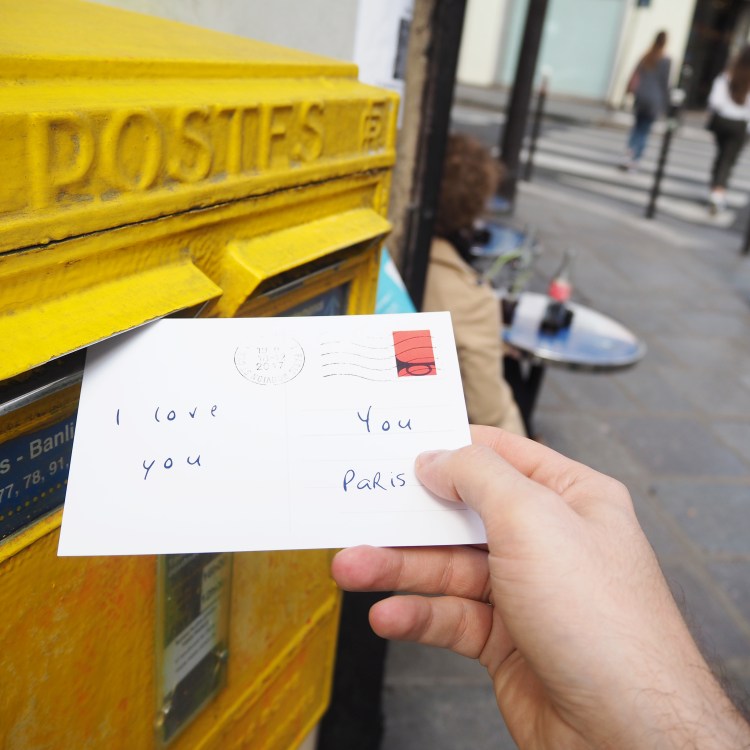 POSTES
- Banli
77, 78, 91,
2017
I love
you
You
PARIS